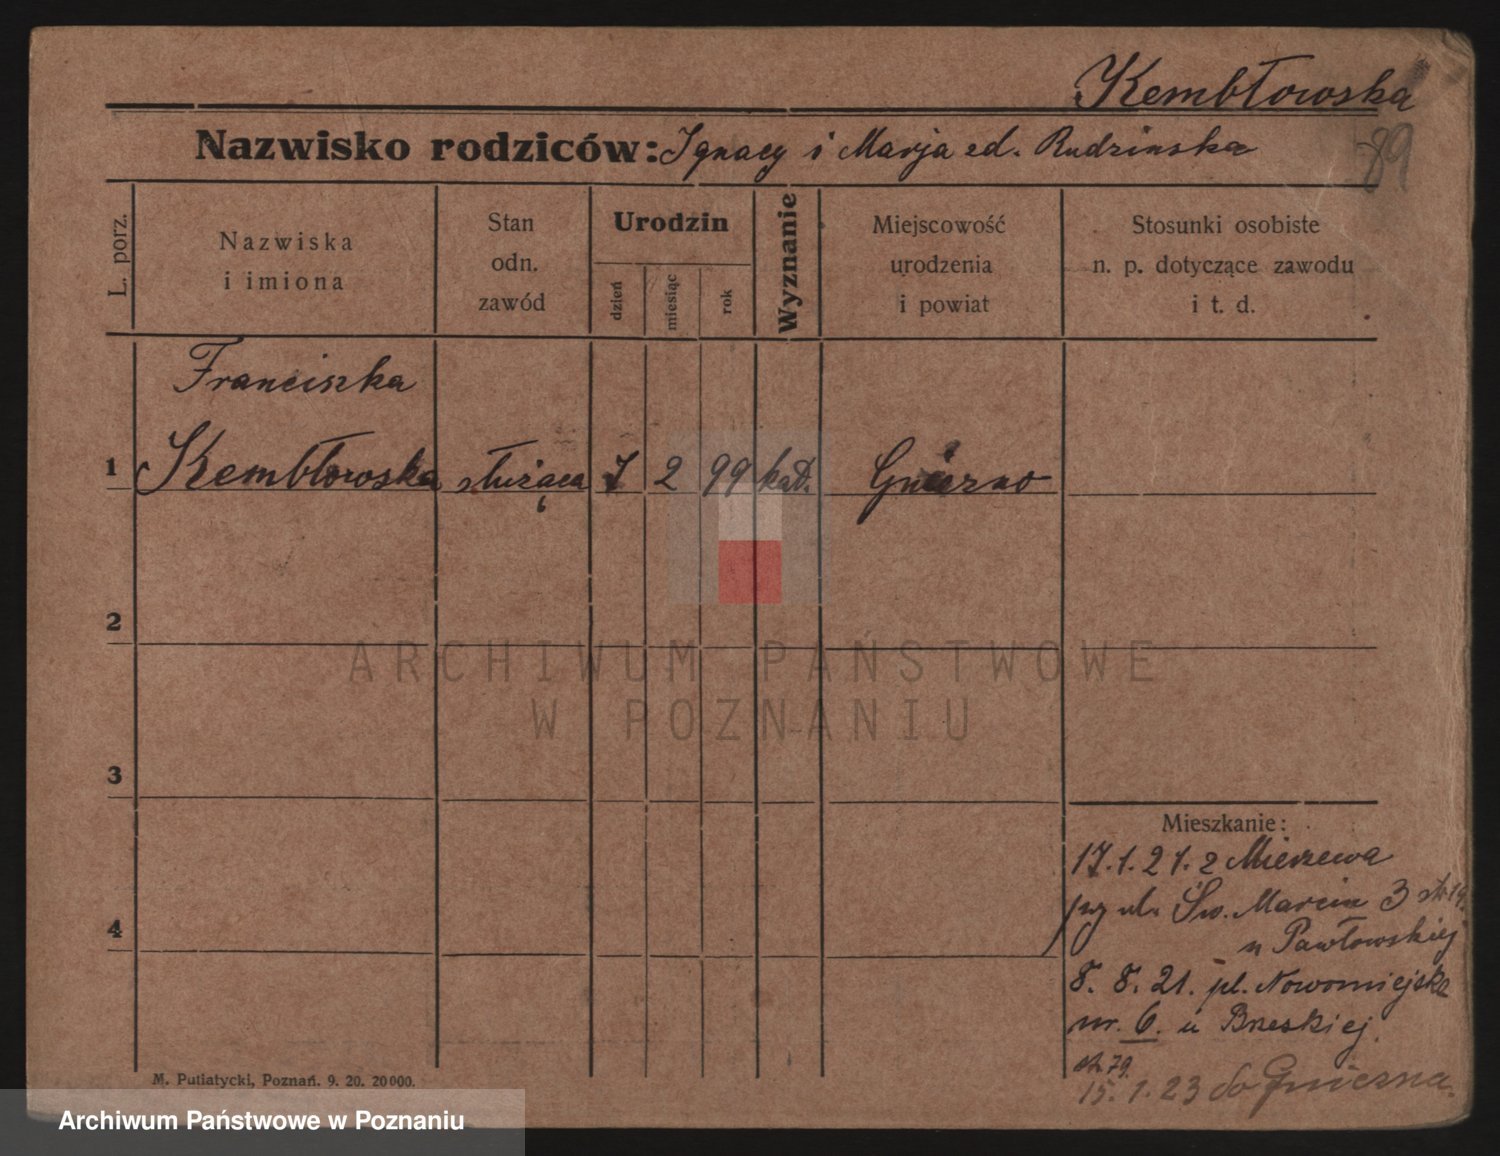 Kembłowska
Nazwisko rodziców: Ignacy i Marja zd. Rudzinska
89
L. porz.
Nazwiska
i imiona
Stan
odn.
zawód
Urodzin
dzień
miesiąc
rok
Wyznanie
Miejscowość
urodzenia
i powiat
Stosunki osobiste
n. p. dotyczące zawodu
i t. d.
Franciszka
1 Kembłowska służąca 7 2 99 kat. Gniezno
2
ARCHIWUM PAŃSTWOWE
W POZNANIU
3
Mieszkanie:
17.1.21. z
przy ul. Św. Marcin 3
u Pawłowskiej
4
8. 8. 21. pl. Nowomiejski
nr. 6. u Brzeskiej.
79.
15. 1. 23 do Gniezna.
M. Putiatycki, Poznań. 9. 20. 20000.
Archiwum Państwowe w Poznaniu